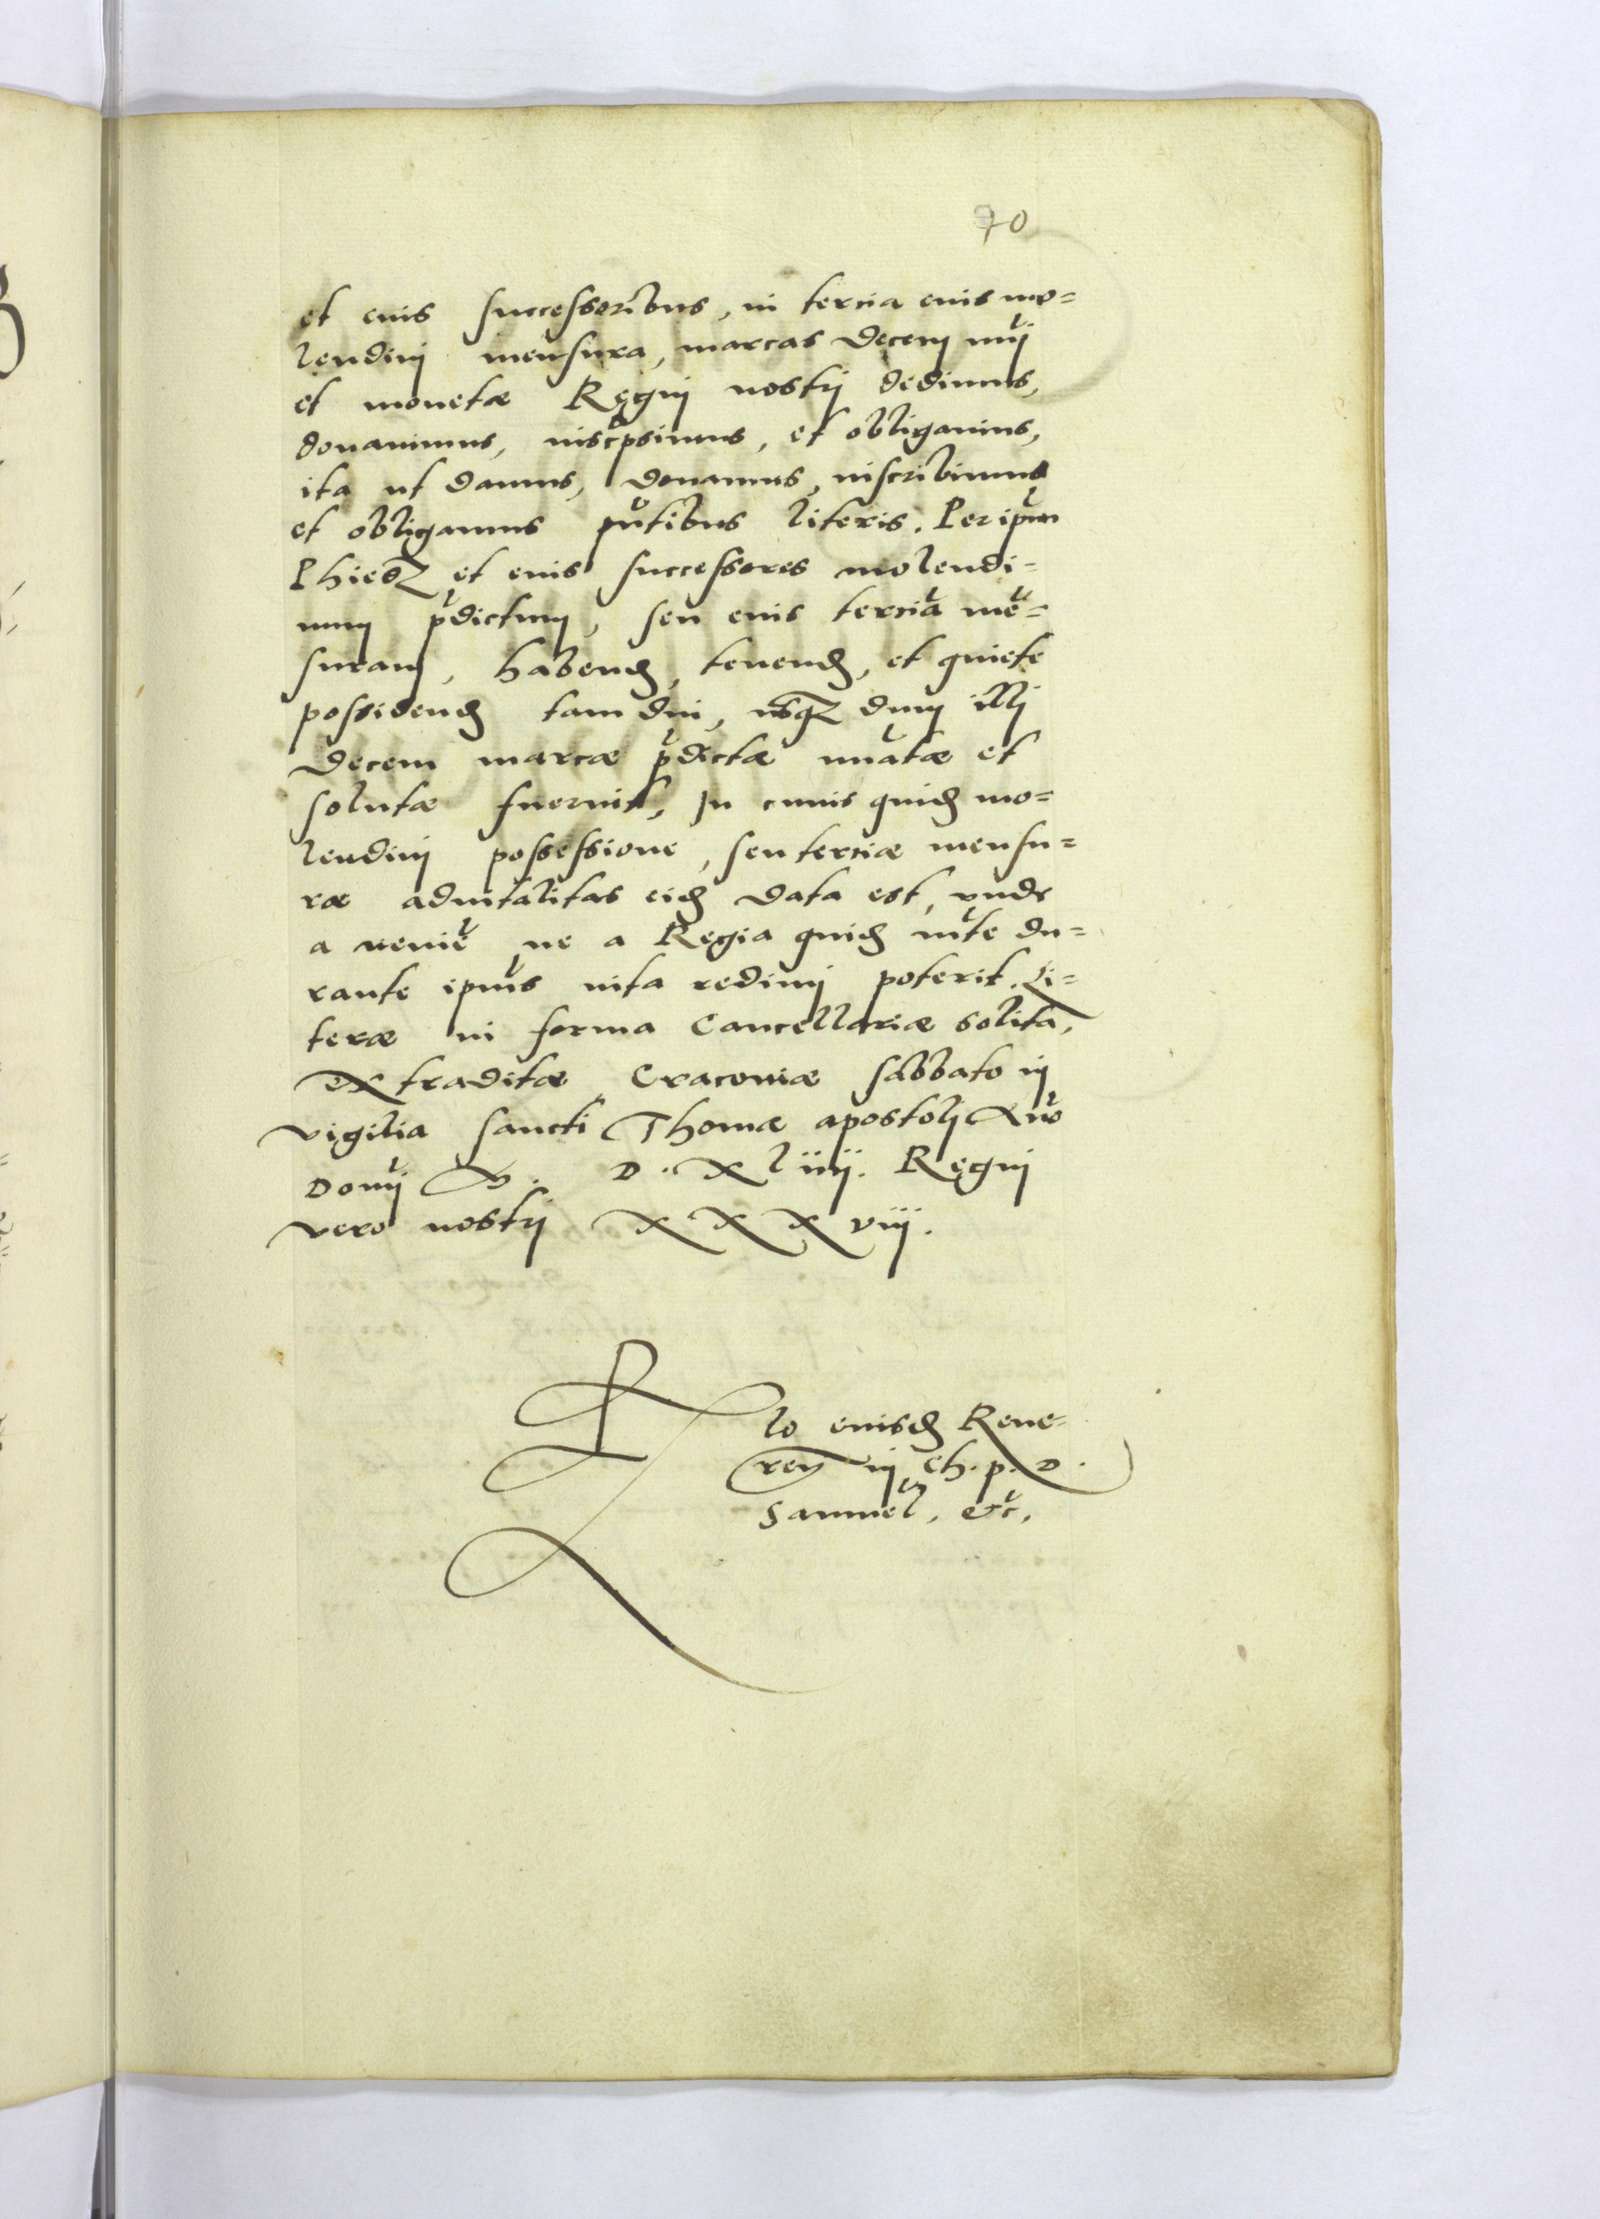 70
et eius successoribus, in tercia eius mo=
lendini mensura, marcas decem nũj
et monetæ Regni nostrj dedimus,
donauimus, inscr̃psimus, et obligauimus,
ita ut damus, donamus, inscribimus
et obligamus p̃ñtibus literis. Per ip̃um
Phiedz et eius successores molendi=
num p̃dictum, seu eius tercĩa mẽ=
suram, habend, tenend, et quiete
possidend tam diu, usqz dum illj
decem marcæ p̃dictæ nũatæ et
solutæ fuerint, In cuius quid mo=
lendinj possessione, seu terciæ mensu=
ræ aduitalitas eid data est, unde
a nemiẽ ne a Regia quid mt̃e du=
rante ip̃ius uita redimj poterit. Li=
teræ in forma Cancellariæ solita,
extraditæ Cracoviæ sabbato in
vigilia sancti Thomæ apostolj Añõ
Domj̃ M. D. Xliiij. Regni
vero nostrj XXXviij.
lo eiusd Reue=
ren in Ch. p. D.
Samuel̃, etc̃,